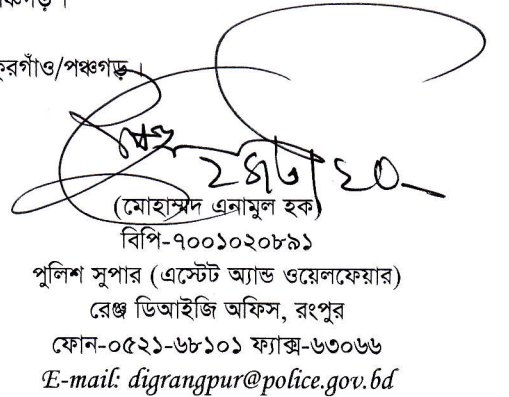 ঞ্চগড়।
কুরগাঁও/পঞ্চগড়।
(মোহাম্মদ এনামুল হক)
বিপি-৭০০১০২০৮৯১
পুলিশ সুপার (এস্টেট অ্যান্ড ওয়েলফেয়ার)
রেঞ্জ ডিআইজি অফিস, রংপুর
ফোন-০৫২১-৬৮১০১ ফ্যাক্স-৬৩০৬৬
E-mail: digrangpur@police.gov.bd